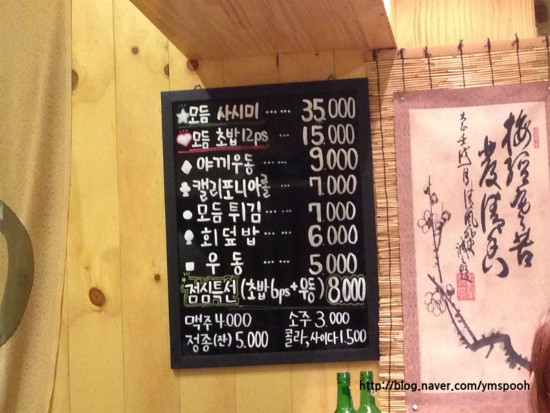 모듬 사시미 …… 35,000
모듬 초밥 12ps … 15,000
야끼우동 …… 9,000
캘리포니아롤 … 7,000
모듬 튀김 …… 7,000
회덮밥 …… 6,000
우동 …… 5,000
점심특선 (초밥 6ps+우동) 8,000
맥주 4,000 소주 3,000
정종(잔) 5,000 콜라, 사이다 1,500
梅經寒苦
發清香
http://blog.naver.com/ymspooh